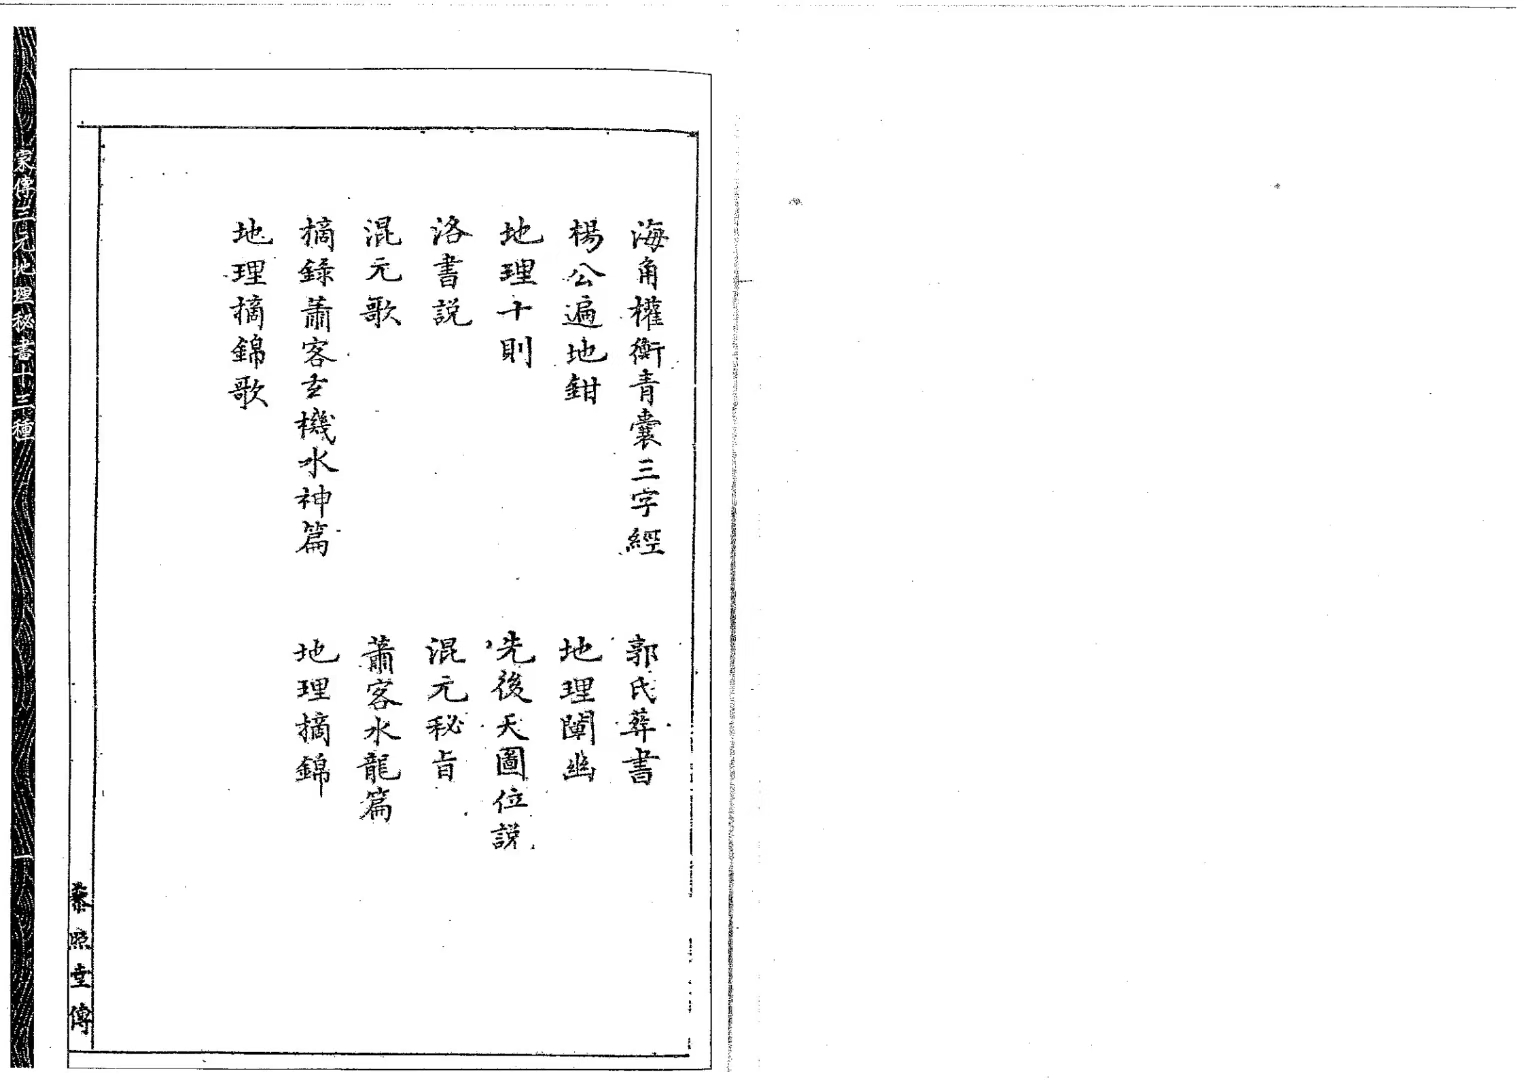 海角權衡青囊三字經
郭氏葬書
楊公遍地鉗
地理闡幽
地理十則
先後天圖位説
洛書説
混元秘旨
混元歌
蕭客水龍篇
摘録蕭客玄機水神篇
地理摘錦
地理摘錦歌
照堂傳
家傳三元地理秘書十三種
一